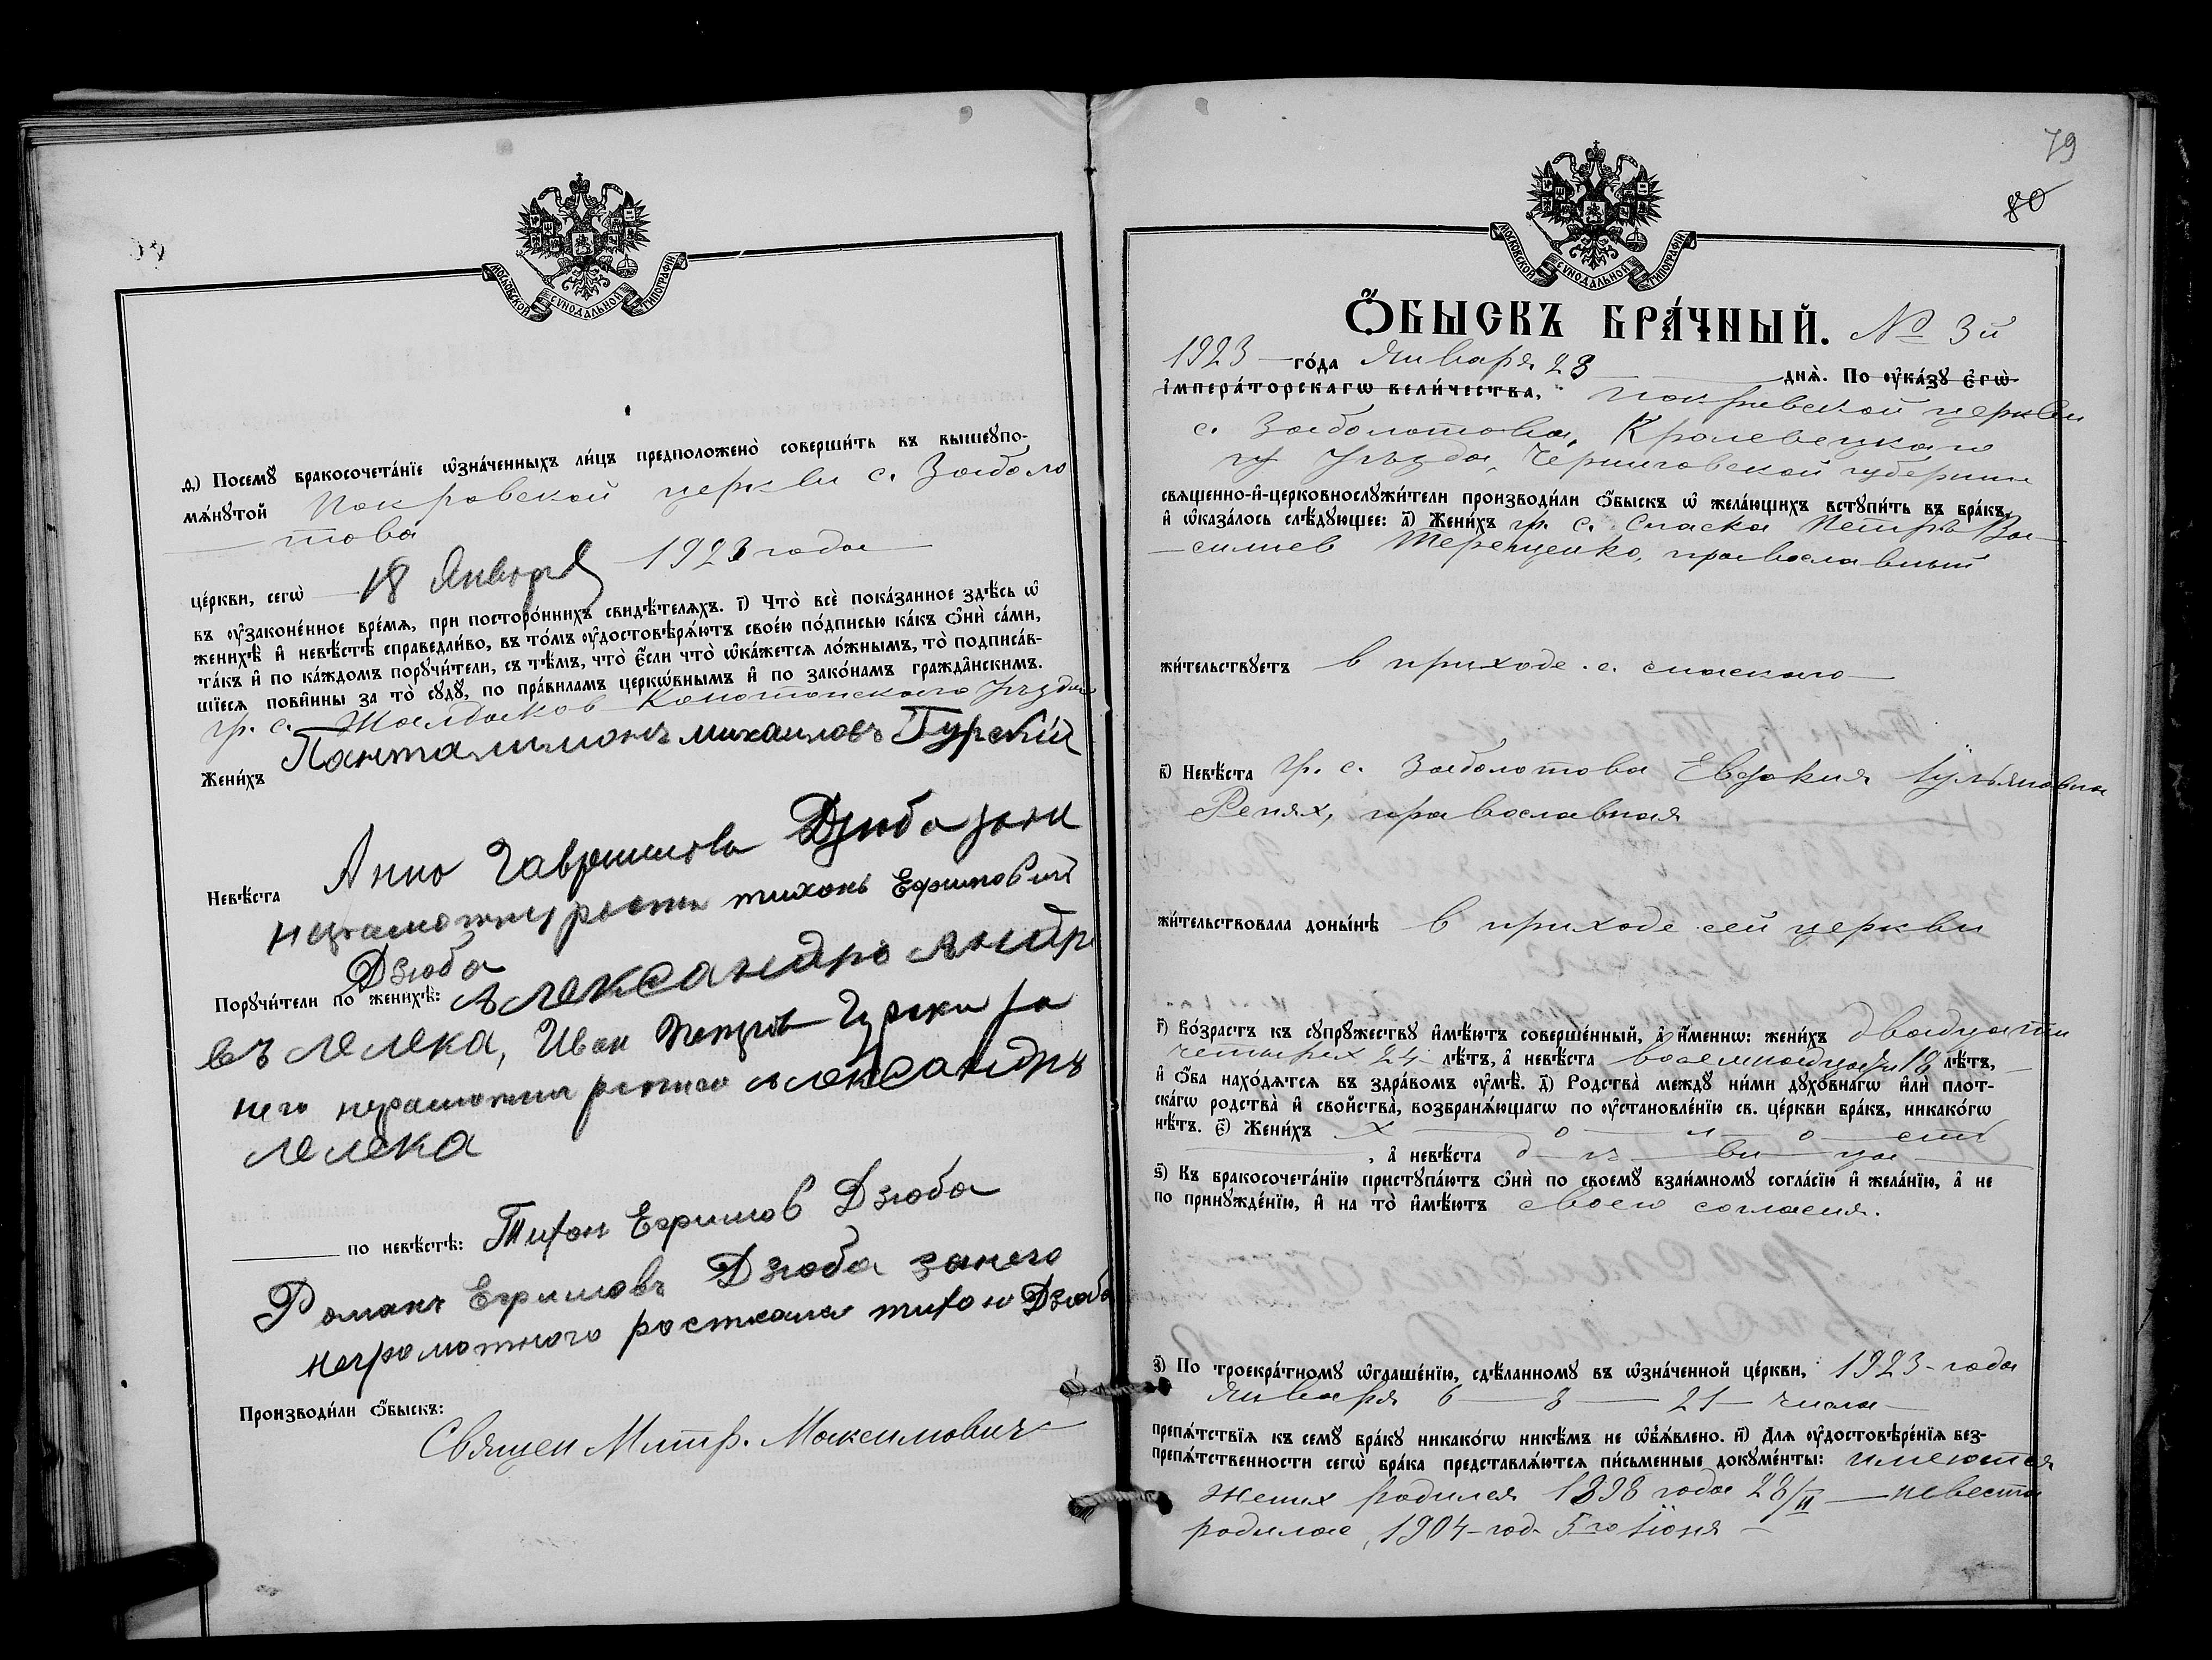 МОСКОВСКОЙ СѴНОДАЛЬНОЙ ТИПОГРАФІИ
д҃) Посемꙋ бракосочета́нїе ѡ҆зна́ченныхъ ли́цъ предположено̀ соверши́ть въ вышеꙋпо-
мѧ́нꙋтой Покровской церкви с. Заболо
това
це́ркви, сегѡ̀ 18 Января 1923 года
въ ᲂу҆законе́нное вре́мѧ, при посторо́ннихъ свидѣ́телѧхъ. і҃) Что̀ всѐ пока́занное здѣ́сь ѡ҆
женихѣ̀ и҆ невѣ́стѣ справедли́во, въ то́мъ ᲂу҆достовѣрѧ́ютъ свое́ю по́дписью ка́къ ѻ҆нѝ са́ми,
та́къ и҆ по ка́ждомъ порꙋчи́тели, съ тѣ́мъ, что̀ є҆́сли что̀ ѡ҆ка́жетсѧ ло́жнымъ, то̀ подписа́в-
шїесѧ пови́нны за то̀ сꙋдꙋ̀, по пра́виламъ церкѡ́внымъ и҆ по зако́намъ гражда́нскимъ.
гр. с. Жолдоков Конотопского уѣзда
Жени́хъ Панталимонъ михаиловъ Гурский
Невѣ́ста Анно Гавриилова Дзюба
тихонъ Ефимовий
Дзюба
Порꙋчи́тели по женихѣ̀: Александро Андр
евъ лелека, Иван Петров Гурски за
него Александръ
лелека
по невѣ́стѣ: Тифон Ефимов Дзюба
Романъ Ефимовъ Дзюба занего
неграмотного тифон Дзюба
Производи́ли ѻ҆́быскъ:
Священ Митр. Максимович
79
80
МОСКОВСКОЙ СѴНОДАЛЬНОЙ ТИПОГРАФІИ
Ѻ҆БЫСКЪ БРА́ЧНЫЙ. № 3й
1923 го́да Января 23 днѧ̀. По ᲂу҆ка́зꙋ є҆гѡ̀
і҆мпера́торскагѡ вели́чества, Покровской церкви
с. Заболотова, Кролевецкаго
уѣзда, Черниговской губернии
свѧщенно-и҆-церковнослꙋжи́тели производи́ли ѻ҆́быскъ ѡ҆ жела́ющихъ встꙋпи́ть въ бра́къ,
и҆ ѡ҆каза́лось слѣ́дꙋющее: а҃) Жени́хъ гр. с. Спаска Петръ Ва-
силиев Терещенко, православный
жи́тельствꙋетъ в приходе. с. спаского
в҃) Невѣ́ста гр. с. Заболотова Евдокия Іульяновна
Репях, православная
жи́тельствовала доны́нѣ в приходе сей церкви
г҃) Во́зрастъ къ сꙋпрꙋ́жествꙋ и҆мѣ́ютъ соверше́нный, а҆ и҆́меннѡ: жени́хъ двадцати
четырех 24 лѣ́тъ, а҆ невѣ́ста восемнадцати 18 лѣ́тъ,
и҆ ѻ҆́ба нахо́дѧтсѧ въ здра́вомъ ᲂу҆мѣ̀. д҃) Родства̀ междꙋ ни́ми дꙋхо́внагѡ и҆лѝ плот-
ска́гѡ родства̀ и҆ сво́йства̀, возбранѧ́ющагѡ по ᲂу҆становле́нїю св. це́ркви бра́къ, никако́гѡ
нѣ́тъ. є҃) Жени́хъ х о л о стъ
, а҆ невѣ́ста д ѣ ви ца
ѕ҃) Къ бракосочета́нїю пристꙋпа́ютъ ѻ҆нѝ по своемꙋ̀ взаи́мномꙋ согла́сїю и҆ жела́нїю, а҆ не
по принꙋжде́нїю, и҆ на то̀ и҆мѣ́ютъ своего согласия.
з҃) По троекра́тномꙋ ѡ҆глаше́нїю, сдѣ́ланномꙋ въ ѡ҆зна́ченной це́ркви, 1923 года
Января 6 — 8 — 21 числа
препѧ́тствїѧ къ семꙋ̀ бра́кꙋ никако́гѡ никѣ́мъ не ѡ҆б̾ѧ́влено. и҃) Длѧ̀ ᲂу҆достовѣре́нїѧ без-
препѧ́тственности сегѡ̀ бра́ка представлѧ́ютсѧ пи́сьменные докꙋме́нты: имеются
Жених родился 1898 года 28/II — невеста
родилас 1904 год 5го Іюня